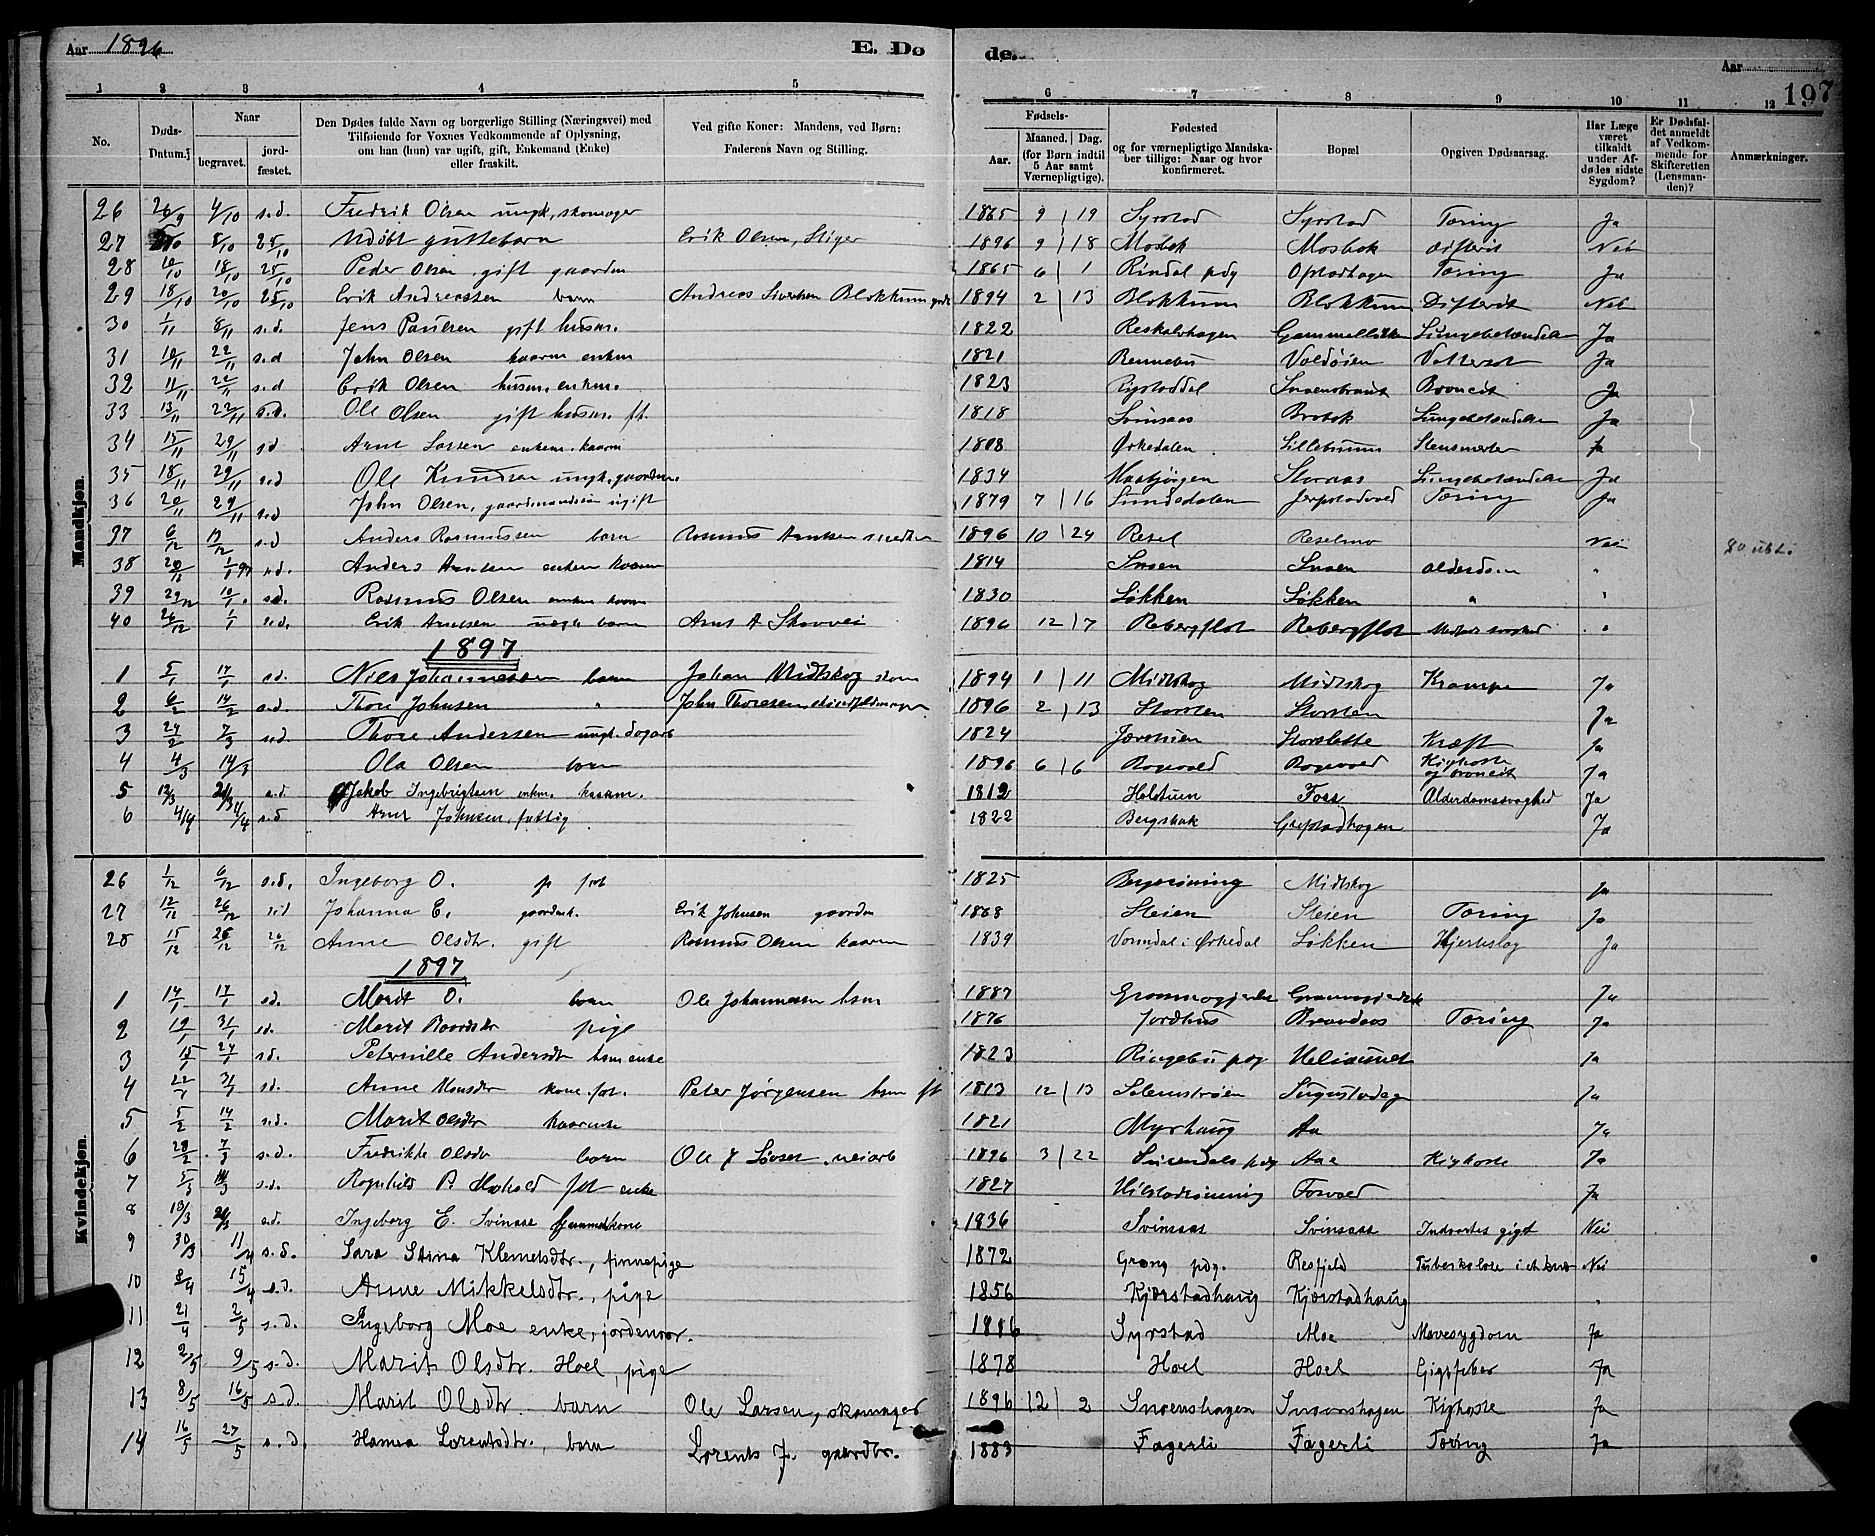 Aar 1896 E. Døde. Aar 197
1 2 3 4 5 6 7 8 9 10 11 12
No. Døds-Datum. Naar begravet. jordfæstet. Den Dødes fulde Navn og borgerlige Stilling (Næringsvei) med Tilføiende for Voxnes Vedkommende af Oplysning, om han (hun) var ugift, gift, Enkemand (Enke) eller fraskilt. Ved gifte Koner: Mandens, ved Børn: Faderens Navn og Stilling. Fødsels- Aar. Maaned. Dag. (for Børn indtil 5 Aar samt Værnepligtige). Fødested og for værnepligtige Mandskaber tillige: Naar og hvor konfirmeret. Bopæl Opgiven Dødsaarsag. Har Læge været tilkaldt under Afdødes sidste Sygdom? Er Dødsfaldet anmeldt af Vedkommende for Skifteretten (Lensmanden)? Anmærkninger.
Mandkjøn.
26 26/9 4/10 s.d. Fredrik Olsen ungk, skomager 1865 9 19 Syrstad Syrstad Tæring Ja
27 8/10 25/10 Udøbt guttebarn Erik Olsen, Stiger 1896 9 18 Mosbak Mosbak difterit Nei
28 10/10 18/10 25/10 Peder Olsen gift gaardm 1865 6 1 Rindal pdg Tæring Ja
29 18/10 20/10 25/10 Erik Andreassen barn Andreas Sivertsen Blokkum 1894 2 13 Blokkum Blokkum Difterit Nei
30 1/11 8/11 s.d. Jens Paulsen gift husm. 1822 Ja
31 10/11 22/11 s.d John Olsen kaarm enkm 1821 Bennebu Voldøien Vattersot Ja
32 11/11 22/11 s.d Erik Olsen husm. enkm. 1823 Bronchit Ja
33 13/11 22/11 s.d. Ole Olsen gift husm. ft. 1818 Svinsaas Brobak Lungebetændelse Ja
34 15/11 29/11 sd Arnt Larsen enkem. kaarm 1808 Ørkedalen Ja
35 18/11 29/11 s.d Ole Knudsen ungk. gaardm. 1834 Storaas Lungebetændelse Ja
36 20/11 29/11 s.d John Olsen, gaardmandssøn ugift 1879 7 16 Lundedalen Tæring Ja
37 6/12 13/12 s.d Anders Rasmussen barn Rasmus Arntsen 1896 10 24 Resel Reselmo Nei
38 1/1 97 s.d. Anders Arntsen enkem kaarm 1814 Snoen Snoen alderdom "
39 29/12 10/1 s.d. Rasmus Olsen enkm kaarm 1830 Løkken Løkken " "
40 26/12 1/1 s.d. Erik Arntsen barn Arnt A Skovvei 1896 12 7 Rebergflot Rebergflot "
1897
1 5/1 17/1 s.d. Nils Johannessen barn Johan Midtskog 1894 1 11 Midtskog Midtskog Krampe Ja
2 6/2 14/2 s.d. Thore Johnsen " John Thoresen 1896 2 13 Storsten Storsten Ja
3 24/2 7/3 s.d. Thore Andersen ungk. dagarb 1824 Storslette Kræft Ja
4 4/3 14/3 Ola Olsen barn 1896 6 6 Rogvold Rogvold Kighoste og bronchit Ja
5 12/3 21/3 s.d. Jakob Ingebrigtsen enkm. kaarm. 1812 Holstuen Foss Alderdomssvaghed Ja
6 4/4 11/4 s.d Arnt Johnsen, fattig 1822 Bergsbak Grefstadhagen Ja
Kvindekjøn.
26 1/12 6/12 s.d. Ingeborg O. p fat 1825 Midtskog Ja
27 12/12 26/12 s.d Johanna E. gaardmk. Erik Johnsen gaardm 1868 Steien Steien Tæring Ja
28 15/12 26/12 26/12 Anne Olsdtr. gift Rasmus Olsen kaarm 1839 Vormdal i Ørkedal Løkken Hjerteslag Ja
1897
1 14/1 17/1 s.d. Marit O. barn Ole Johannessen hsm 1887 Ja
2 19/1 31/1 s.d. Marit Baardsdtr pige 1876 Jordhus Brandaas Tæring Ja
3 15/1 24/1 s.d. Peternille Andersdtr hsm enke 1823 Ringebu pdg Ja
4 31/1 s.d. Anne kone. fat. Peter Jørgensen hsm ft 1813 12 13 Ja
5 5/2 14/2 s.d. Marit Olsdtr kaarenke 1821 Myrhaug Aa Ja
6 28/2 7/3 s.d. Fredrikke Olsdtr barn Ole J veiarb 1896 3 22 Aae Kighoste Ja
7 5/3 14/3 s.d. Ragnhild P. fat enke 1827 Forvold Ja
8 13/3 21/3 s.d. Ingeborg E. Svinsaas 1836 Svinsaas Svinsaas Indvortes gigt Nei
9 30/3 11/4 s.d. Sara Stina Klemetsdtr., finnepige 1872 Grong pdg. Resfjeld Tuberkulose i et knæ Nei
10 8/4 15/4 s.d. Anne Mikkelsdtr., pige 1856 Kjørstadhaug Kjørstadhaug "
11 21/4 2/5 s.d. Ingeborg Moe enke, jordemor. 1816 Syrstad Moe Mavesygdom Ja
12 2/5 9/5 s.d. Marit Olsdtr. Hoel, pige 1878 Hoel Hoel Gigtfeber Ja
13 8/5 16/5 s.d. Marit Olsdtr. barn Ole Larsen, skomager 1896 12 2 Snoenshagen Snoenshagen Kighoste Ja
14 16/5 27/5 s.d. Hanna Lorentsdtr., barn Lorents J. gaardbr. 1883 Fagerli Fagerli Tæring Ja